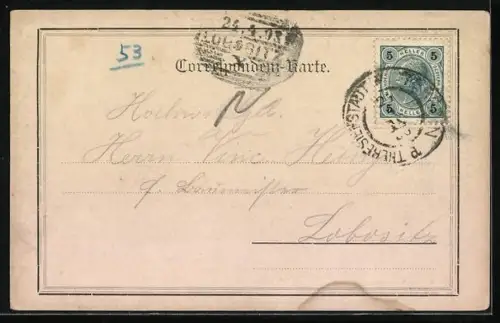 53
24.4.03
LOBOSITZ
Correspondenz-Karte.
5 HELLER 5
5 HELLER 5
THERESIENSTADT
Hochwohlgeb.
Herrn Vinc.
Baumeister
Lobositz